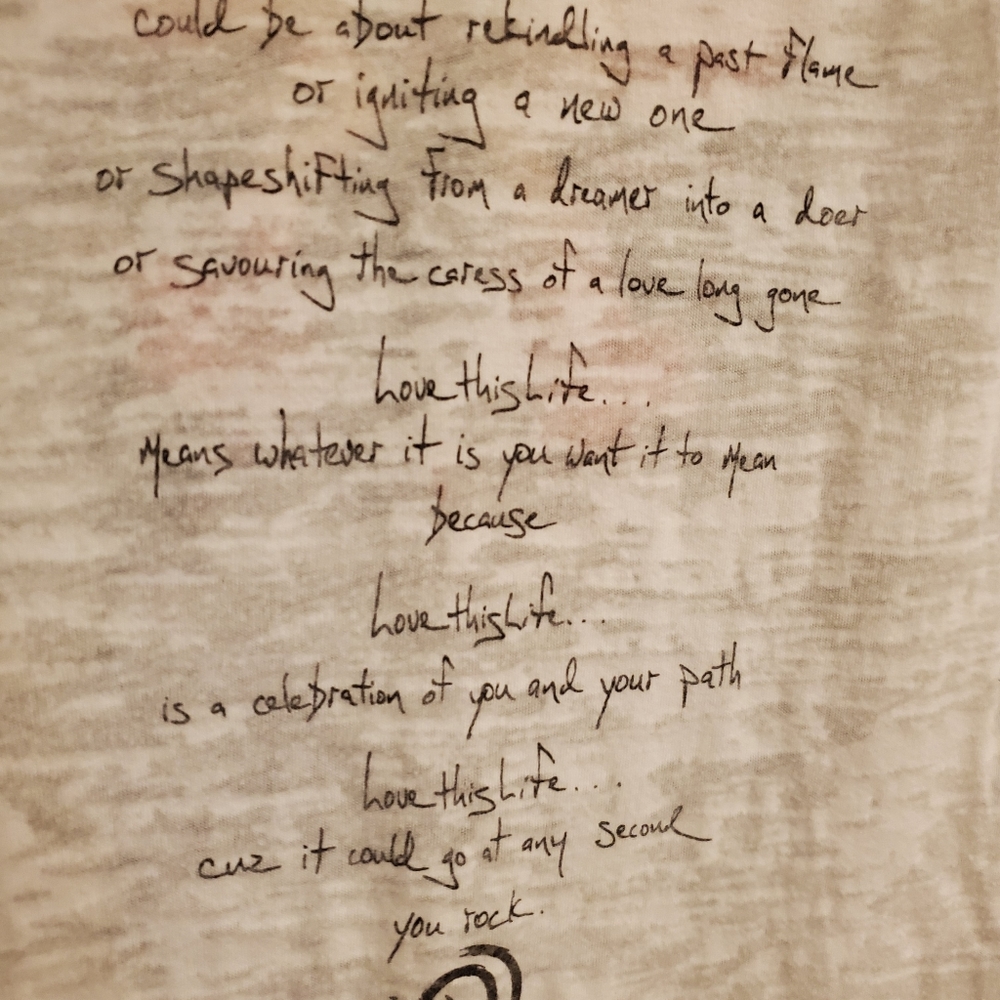 could be about rekindling a past flame
or igniting a new one
or shapeshifting from a dreamer into a doer
or savouring the caress of a love long gone
LovethisLife...
Means whatever it is you want it to Mean
because
LovethisLife...
is a celebration of you and your path
LovethisLife...
cuz it could go at any second
you rock.